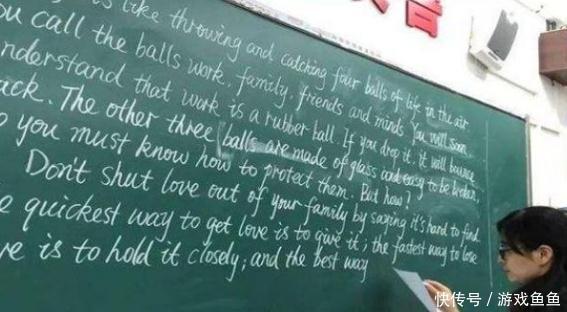 is like throwing and catching four balls of life in the air.
ou call the balls work, family, friends and minds. You will soon
nderstand that work is a rubber ball. If you drop it, it will bounce
ack. The other three balls are made of glass and easy to be broken,
o you must know how to protect them. But how?
Don't shut love out of your family by saying it's hard to find.
e quickest way to get love is to give it; the fastest way to lose
ve is to hold it closely; and the best way
快传号／游戏鱼鱼